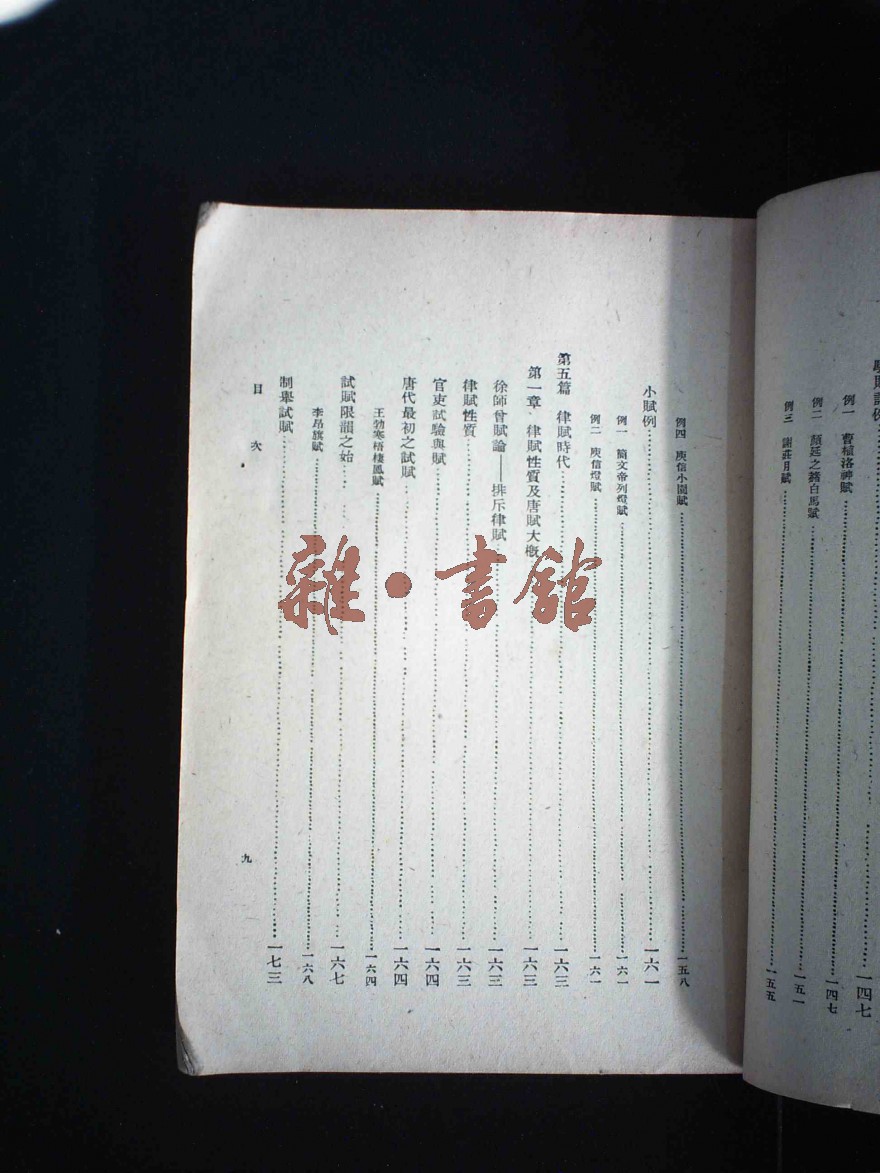 例一　曹植洛神賦……一四七
例二　顏延之赭白馬賦……一五一
例三　謝莊月賦……一五五
例四　庾信小園賦……一五八
小賦例……一六一
例一　簡文帝列燈賦……一六一
例二　庾信燈賦……一六一
第五篇　律賦時代……一六三
第一章　律賦性質及唐賦大概……一六三
徐師曾賦論——排斥律賦……一六三
律賦性質……一六三
官吏試驗與賦……一六四
唐代最初之試賦……一六四
王勃寒梧棲鳳賦……一六四
試賦限韻之始……一六七
李昂旗賦……一六八
制舉試賦……一七三
目次
九
雜·書館